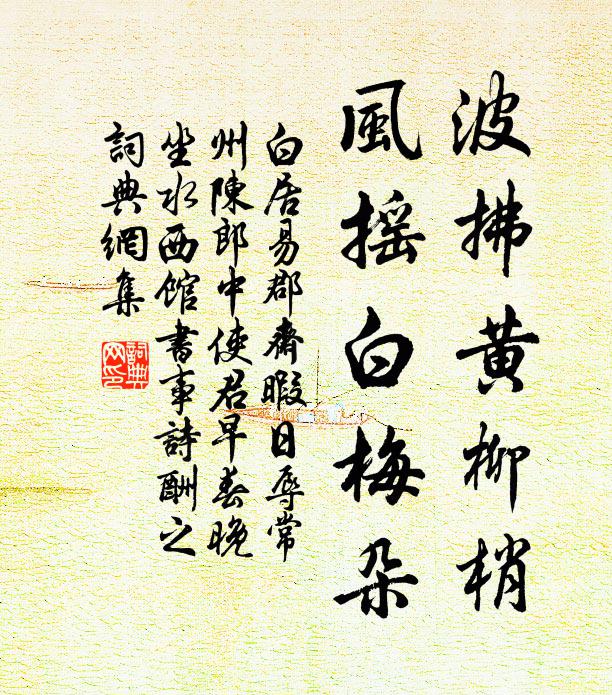 波拂黄柳梢
風摇白梅朵
白居易郡齋暇日辱常
州陳郎中使君早春晚
坐水西館書事詩酬之
詞典網集
詞典
网印